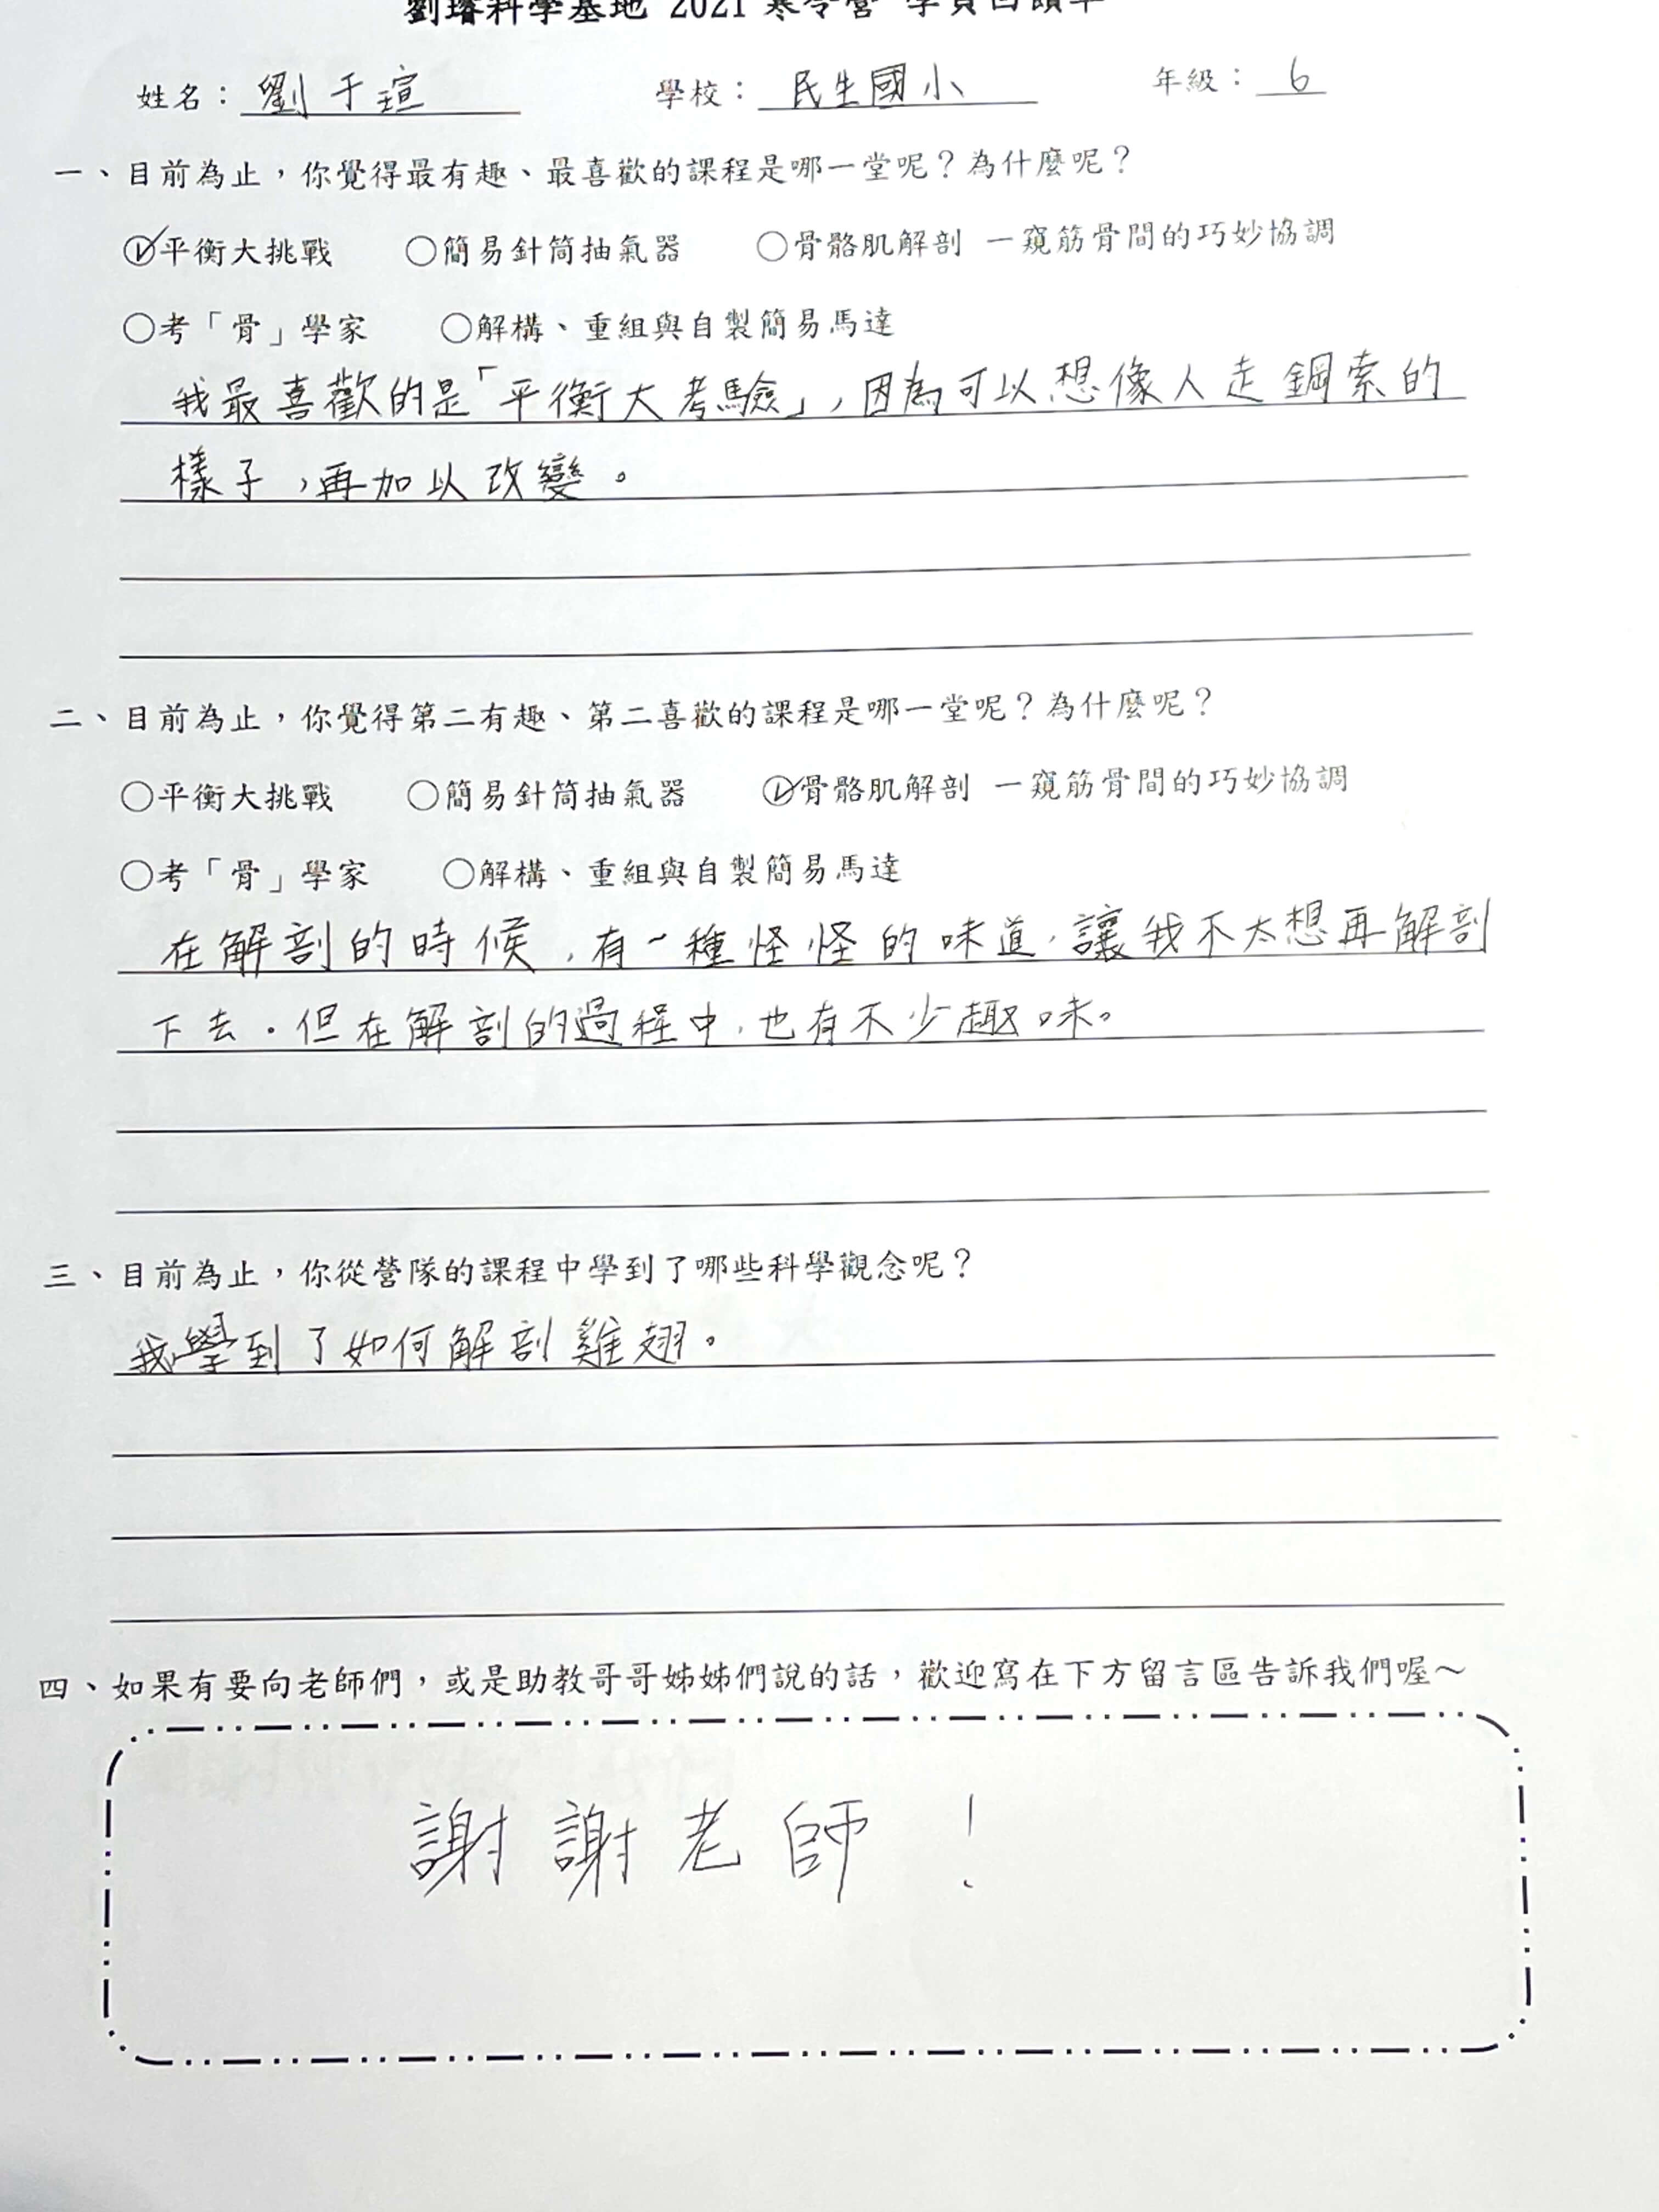 劉璿科學基地 2021 寒令營 學員回饋單
姓名：劉于瑄 學校：民生國小 年級：6
一、目前為止，你覺得最有趣、最喜歡的課程是哪一堂呢？為什麼呢？
○平衡大挑戰 ○簡易針筒抽氣器 ○骨骼肌解剖 一窺筋骨間的巧妙協調
○考「骨」學家 ○解構、重組與自製簡易馬達
我最喜歡的是「平衡大考驗」，因為可以想像人走鋼索的
樣子，再加以改變。
二、目前為止，你覺得第二有趣、第二喜歡的課程是哪一堂呢？為什麼呢？
○平衡大挑戰 ○簡易針筒抽氣器 ○骨骼肌解剖 一窺筋骨間的巧妙協調
○考「骨」學家 ○解構、重組與自製簡易馬達
在解剖的時候，有一種怪怪的味道，讓我不太想再解剖
下去。但在解剖的過程中，也有不少趣味。
三、目前為止，你從營隊的課程中學到了哪些科學觀念呢？
我學到了如何解剖雞翅。
四、如果有要向老師們，或是助教哥哥姊姊們說的話，歡迎寫在下方留言區告訴我們喔～
謝謝老師！